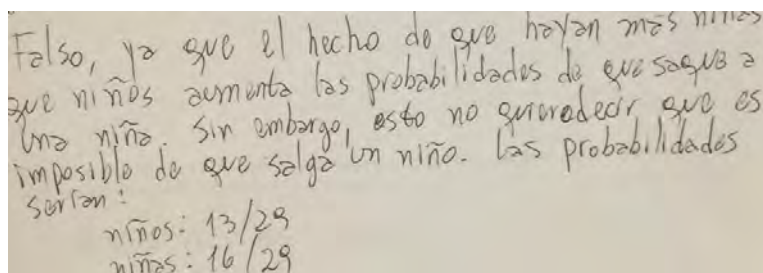 Falso, ya que el hecho de que hayan más niñas
que niños aumenta las probabilidades de que saque a
una niña. Sin embargo, esto no quiere decir que es
imposible de que salga un niño. Las probabilidades
serían:
niños: 13/29
niñas: 16/29